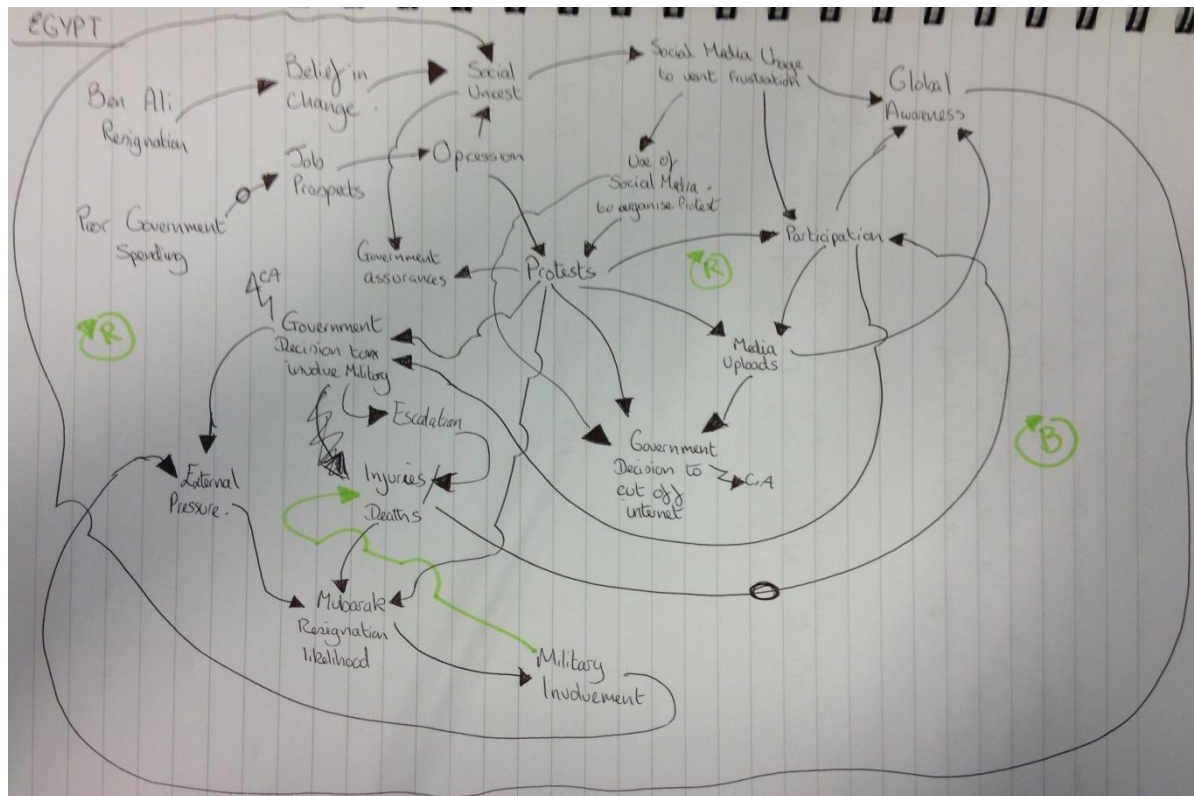 EGYPT
Ben Ali
Resignation
Belief in
Change.
Social
Unrest
Social Media Usage
to vent frustration
Global
Awareness
Poor Government
Spending
Job
Prospects
Opression
Use of
Social Media.
to organise Protest
Participation
Government
assurances
Protests
R
CA
R
Government
Decision to
involve Military
Media
Uploads
Escalation
Government
Decision to
cut off
internet
C.A
B
External
Pressure.
Injuries/
Deaths
Mubarak
Resignation
likelihood
Military
Involvement